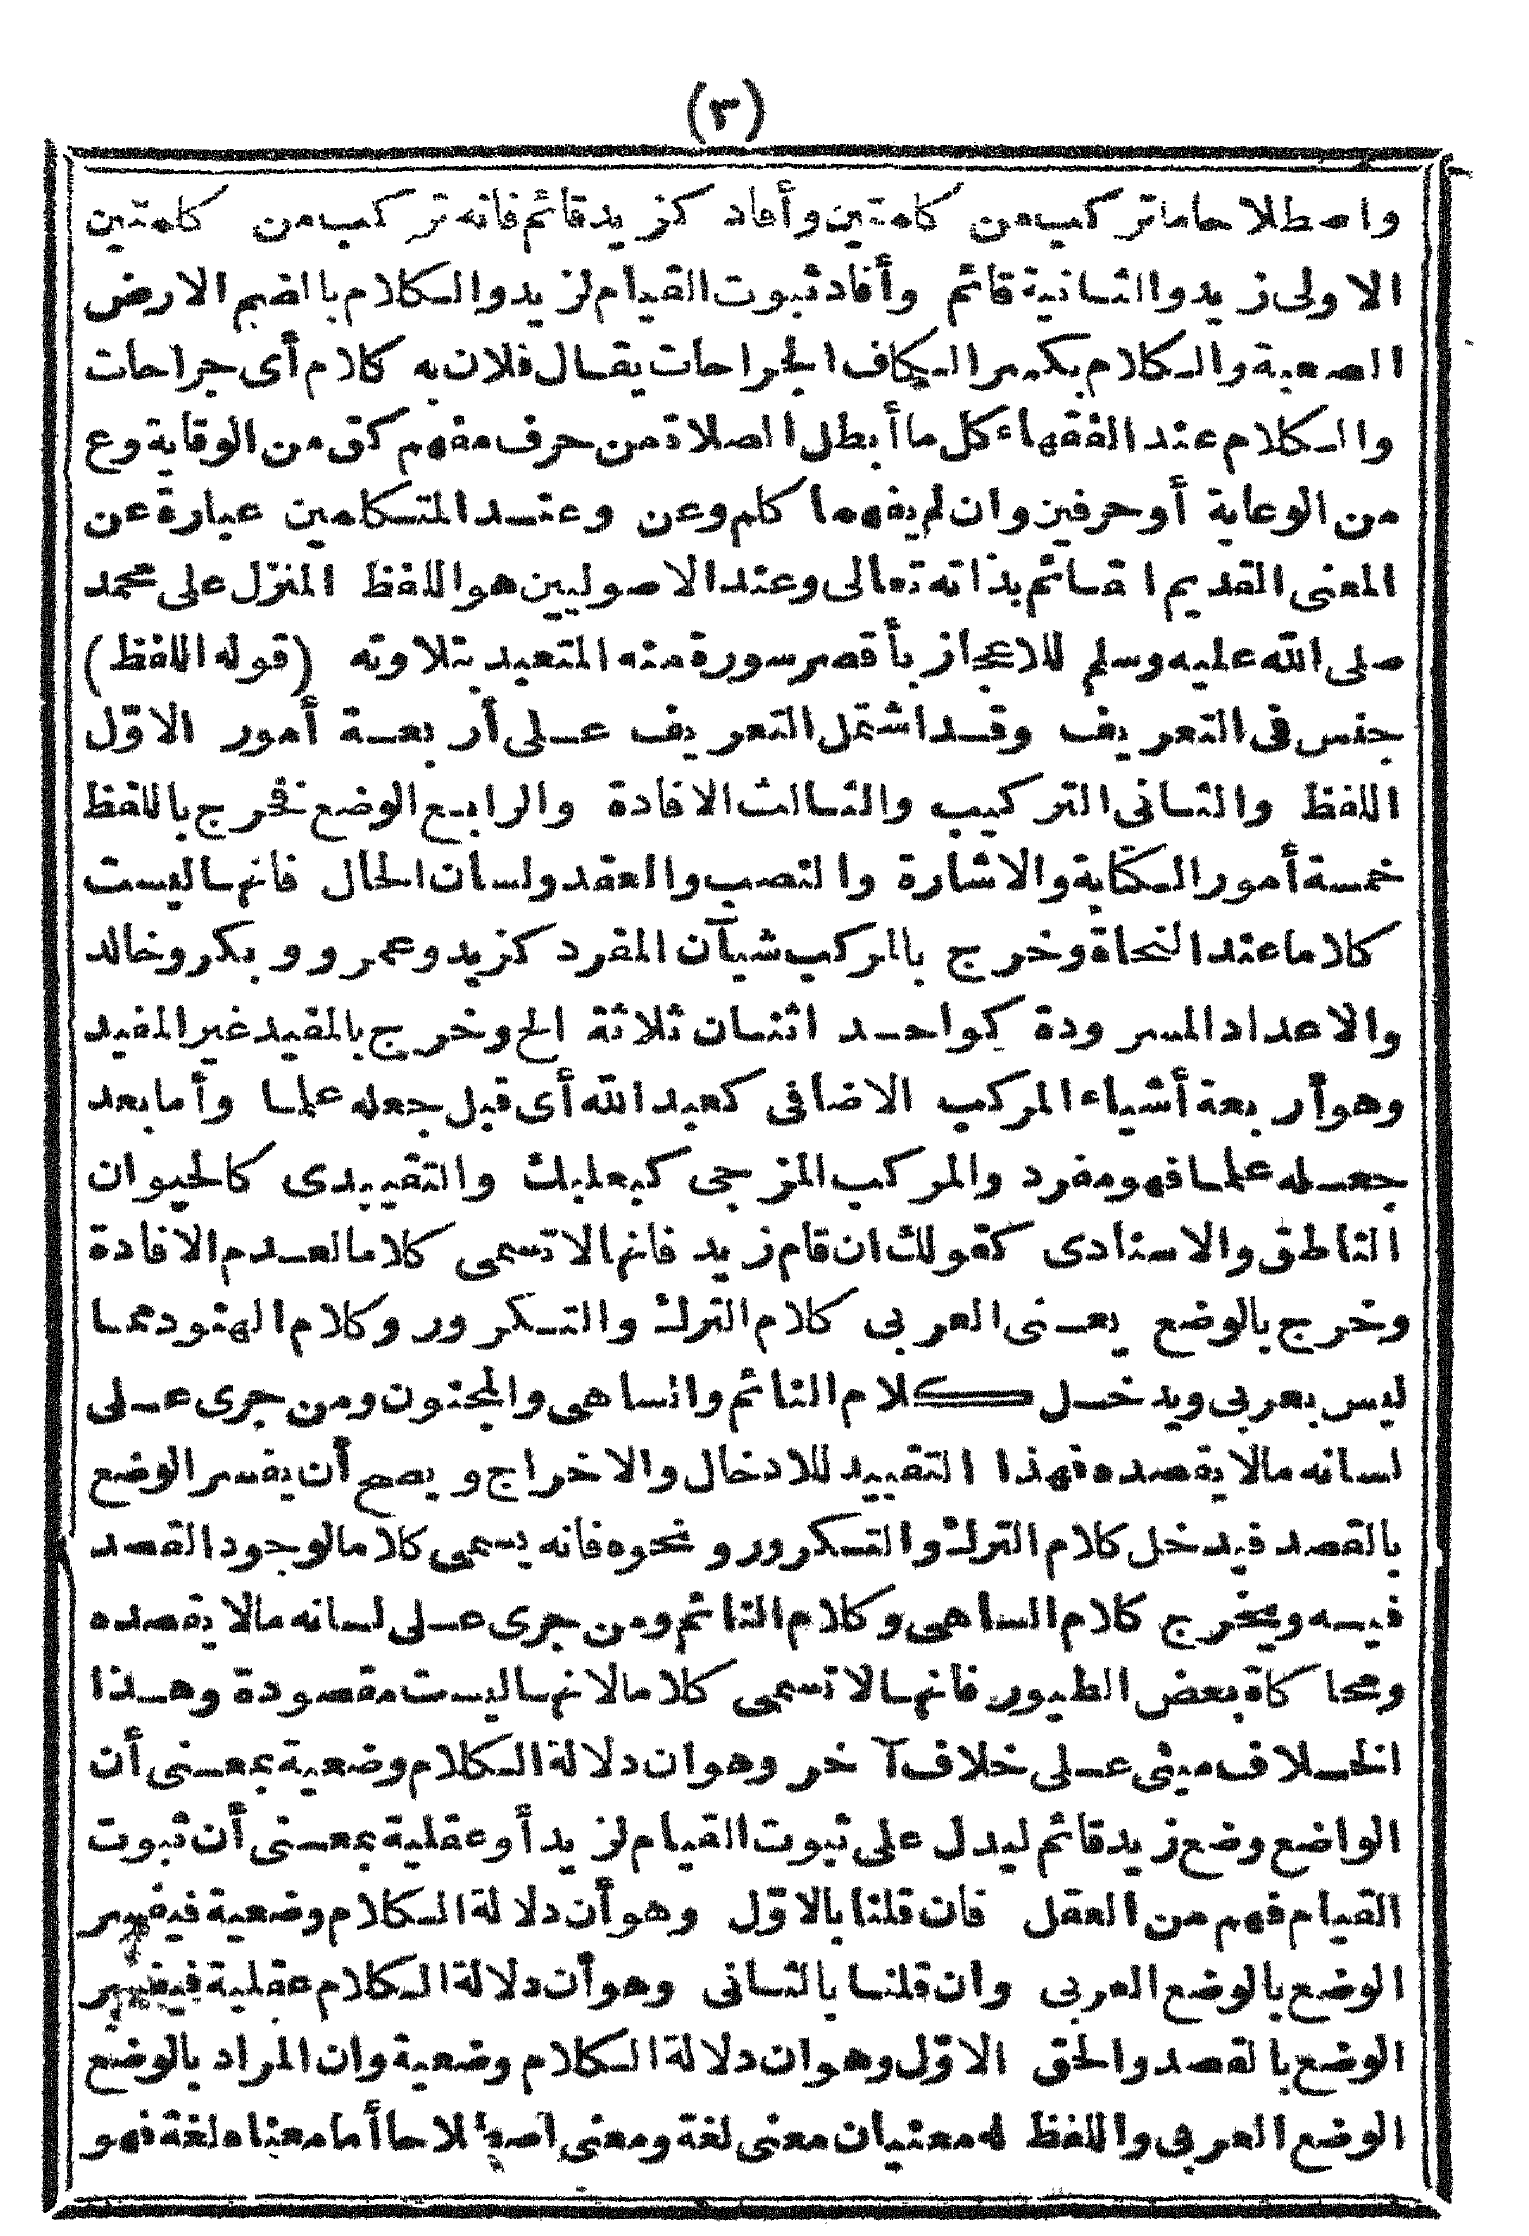 (٣)
واصطلاحا ماتركب من كلمتين وأفاد كزيد قائم فانه تركب من كلمتين
الاولى زيد والثانية قائم وأفاد ثبوت القيام لزيد والكلام بالضم الارض
الصعبة والكلام بكسر الكاف الجراحات يقال فلان به كلام أى جراحات
والكلام عند الفقهاء كل ما أبطل الصلاة من حرف مفهم كق من الوقاية وع
من الوعاية أو حرفين وان لم يفهما كلم وعن وعند المتكلمين عبارة عن
المعنى القديم القائم بذاته تعالى وعند الاصوليين هو اللفظ المنزل على محمد
صلى الله عليه وسلم للاعجاز بأقصر سورة منه المتعبد بتلاوته (قوله اللفظ)
جنس فى التعريف وقد اشتمل التعريف على أربعة أمور الاوّل
اللفظ والثانى التركيب والثالث الافادة والرابع الوضع نخرج باللفظ
خمسة أمور الكتابة والاشارة والنصب والعقد ولسان الحال فانها ليست
كلاما عند النحاة وخرج بالمركب شيآن المفرد كزيد وعمرو و بكر وخالد
والاعداد المسرودة كواحد اثنان ثلاثة الخ وخرج بالمفيد غير المفيد
وهو أربعة أشياء المركب الاضافى كعبد الله أى قبل جعله علما وأما بعد
جعله علما فهو مفرد والمركب المزجى كبعلبك والتقييدى كالحيوان
الناطق والاسنادى كقولك ان قام زيد فانها لا تسمى كلاما لعدم الافادة
وخرج بالوضع يعنى العربى كلام الترك والتكرور وكلام الهنود مما
ليس بعربى ويدخل كلام النائم والساهى والمجنون ومن جرى على
لسانه مالا يقصده فهذا التقييد للادخال والاخراج و يصح أن يفسر الوضع
بالقصد فيدخل كلام الترك والتكرور و نحوه فانه يسمى كلاما لوجود القصد
فيه ويخرج كلام الساهى وكلام النائم ومن جرى على لسانه مالا يقصده
ومحاكاة بعض الطيور فانها لا تسمى كلاما لانها ليست مقصودة وهذا
الخلاف مبنى على خلاف آخر وهو ان دلالة الكلام وضعية بمعنى أن
الواضع وضع زيد قائم ليدل على ثبوت القيام لزيد أو عقلية بمعنى أن ثبوت
القيام فهم من العقل فان قلنا بالاوّل وهو أن دلالة الكلام وضعية فيفسر
الوضع بالوضع العربى وان قلنا بالثانى وهو أن دلالة الكلام عقلية فيفسر
الوضع بالقصد والحق الاوّل وهو ان دلالة الكلام وضعية وان المراد بالوضع
الوضع العربى واللفظ له معنيان معنى لغة ومعنى اصطلاحا أما معناه لغة فهو